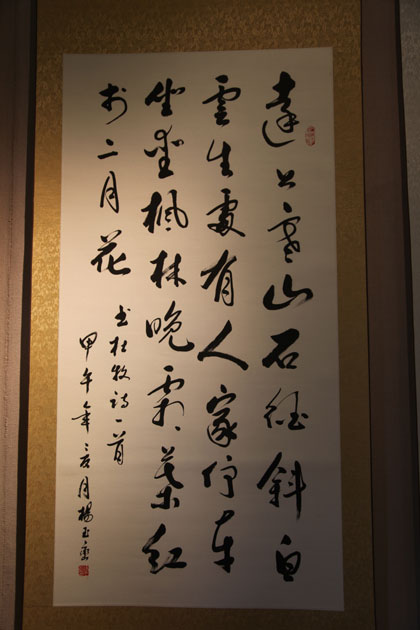 遠上寒山石徑斜白
雲生處有人家停車
坐愛楓林晚霜葉紅
於二月花
書杜牧詩一首
甲午年亥月楊玉